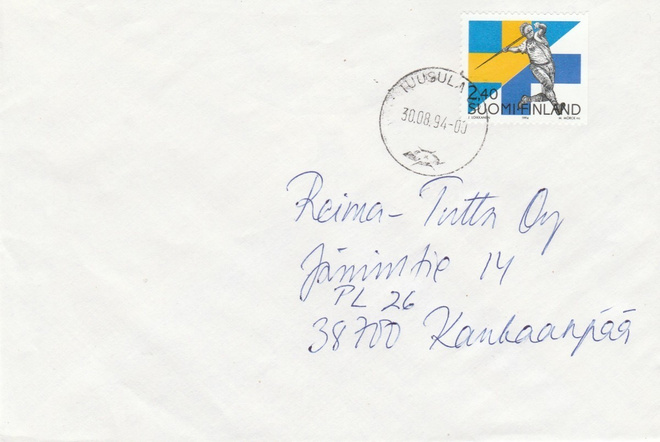 TUUSULA
30.08.94-00
2,40
SUOMI FINLAND
1994
Reima-Tutta Oy
Jämintie 14
PL 26
38700 Kankaanpää